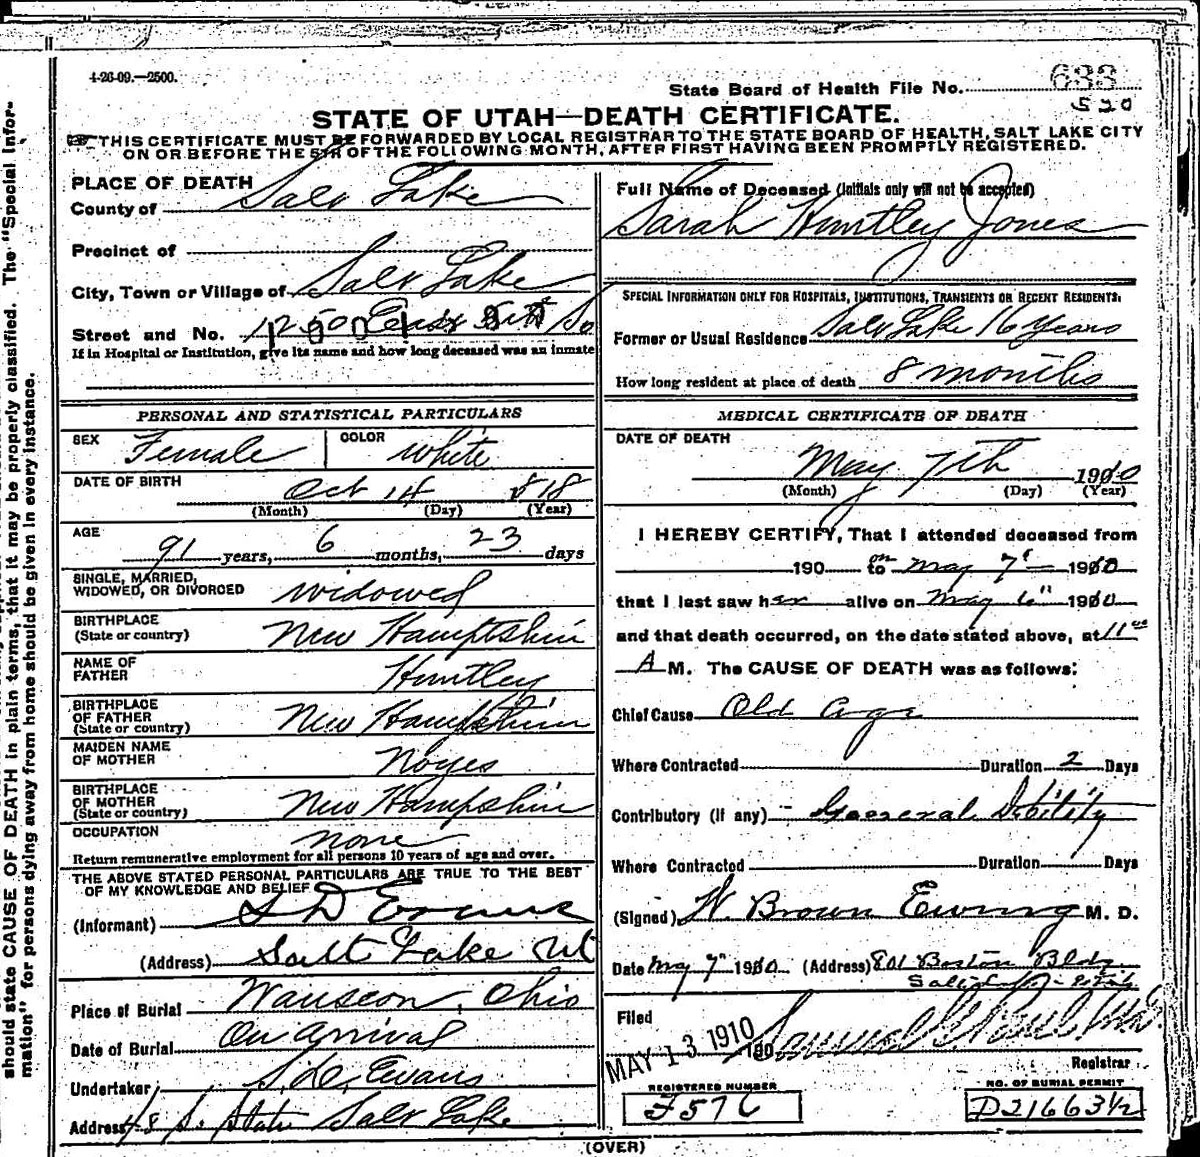 4-26-09.—2500.
State Board of Health File No. 633
520
STATE OF UTAH—DEATH CERTIFICATE.
THIS CERTIFICATE MUST BE FORWARDED BY LOCAL REGISTRAR TO THE STATE BOARD OF HEALTH, SALT LAKE CITY
ON OR BEFORE THE 5TH OF THE FOLLOWING MONTH, AFTER FIRST HAVING BEEN PROMPTLY REGISTERED.
PLACE OF DEATH
County of Salt Lake
Precinct of
City, Town or Village of Salt Lake
Street and No. 1250 East 5th So
If in Hospital or Institution, give its name and how long deceased was an inmate
PERSONAL AND STATISTICAL PARTICULARS
SEX Female COLOR White
DATE OF BIRTH Oct 14 1818
(Month) (Day) (Year)
AGE 91 years, 6 months, 23 days
SINGLE, MARRIED,
WIDOWED, OR DIVORCED widowed
BIRTHPLACE
(State or country) New Hampshire
NAME OF
FATHER Huntley
BIRTHPLACE
OF FATHER
(State or country) New Hampshire
MAIDEN NAME
OF MOTHER Noyes
BIRTHPLACE
OF MOTHER
(State or country) New Hampshire
OCCUPATION none
Return remunerative employment for all persons 10 years of age and over.
THE ABOVE STATED PERSONAL PARTICULARS ARE TRUE TO THE BEST
OF MY KNOWLEDGE AND BELIEF
(Informant) S D Evans
(Address) Salt Lake Ut
Place of Burial Wauseon, Ohio
Date of Burial On arrival
Undertaker S. D. Evans
Address 48 S. State Salt Lake
Full Name of Deceased (Initials only will not be accepted)
Sarah Huntley Jones
SPECIAL INFORMATION ONLY FOR HOSPITALS, INSTITUTIONS, TRANSIENTS OR RECENT RESIDENTS:
Former or Usual Residence Salt Lake 16 years
How long resident at place of death 8 months
MEDICAL CERTIFICATE OF DEATH
DATE OF DEATH
May 7th 1910
(Month) (Day) (Year)
I HEREBY CERTIFY, That I attended deceased from
190 on to May 7th 1910
that I last saw her alive on May 6th 1910
and that death occurred, on the date stated above, at 11 00
A M. The CAUSE OF DEATH was as follows:
Chief Cause Old Age
Where Contracted Duration 2 Days
Contributory (if any) General Debility
Where Contracted Duration Days
(Signed) W. Brown Ewing M. D.
Date May 7th 1910 (Address) 801 Boston Bldg
Filed
MAY 13 1910 190
Registrar
REGISTERED NUMBER
F576
NO. OF BURIAL PERMIT
D21663½
(OVER)
should state CAUSE OF DEATH in plain terms, that it may be properly classified. The "Special Infor-
mation" for persons dying away from home should be given in every instance.